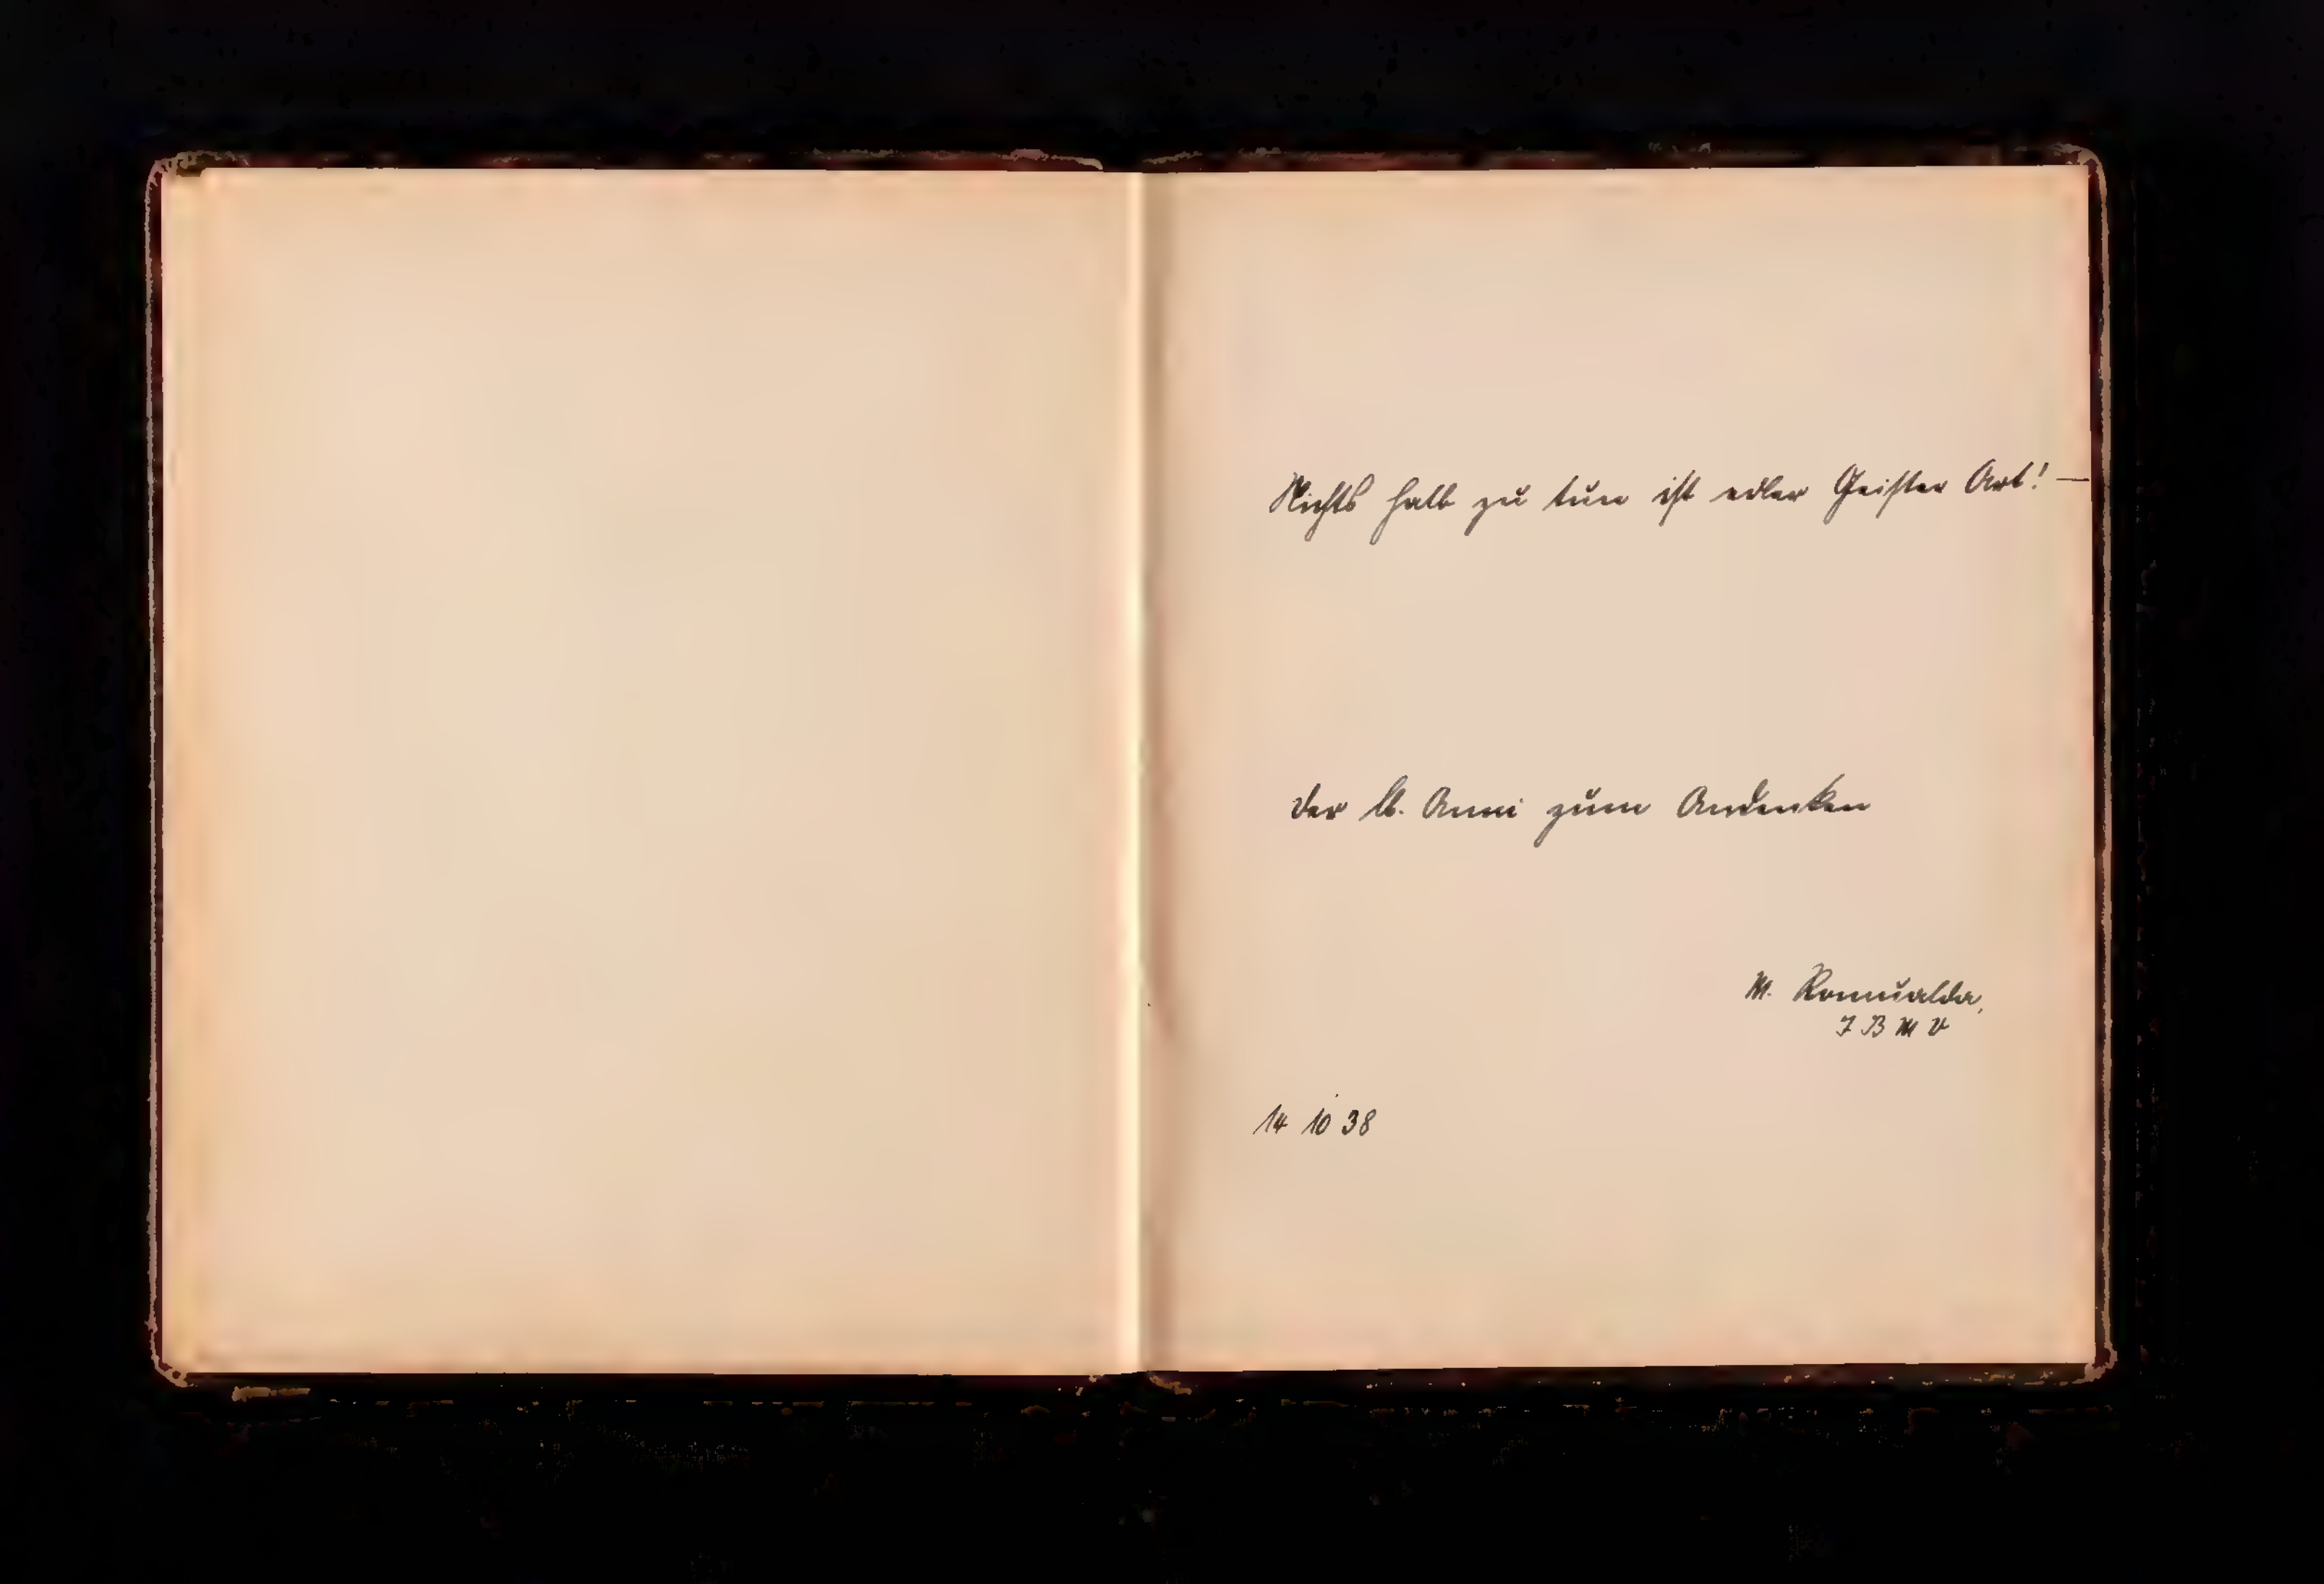 Nichts halb zu tun ist edler Geister Art! —
der lb. Anni zum Andenken
M. Romualda,
I B M V
14 10 38